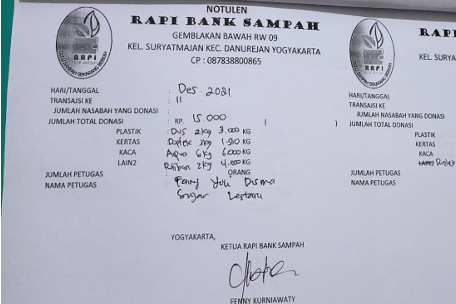 NOTULEN
RAPI BANK SAMPAH
GEMBLAKAN BAWAH RW 09
KEL. SURYATMAJAN KEC. DANUREJAN YOGYAKARTA
CP : 087838800865
RAPI
HARI/TANGGAL : Des 2021
TRANSAJSI KE : 11
JUMLAH NASABAH YANG DONASI
JUMLAH TOTAL DONASI : RP. 15.000 ( )
PLASTIK : Dus 2kg 3.000 KG
KERTAS : Duplek 3kg KG
KACA : Aqua 6kg 6000 KG
LAIN2 : 2kg 4.000 KG
JUMLAH PETUGAS : ORANG
NAMA PETUGAS : Fenny Yuli Disma
Sugar Lestari
YOGYAKARTA,
KETUA RAPI BANK SAMPAH
FENNY KURNIAWATY
RAPI
RAPI
GEMBL
KEL. SURYATMAJ
CP
HARI/TANGGAL :
TRANSAJSI KE :
JUMLAH NASABAH YANG DONASI
JUMLAH TOTAL DONASI : RP.
PLASTIK :
KERTAS :
KACA :
LAIN2 Duplek
JUMLAH PETUGAS :
NAMA PETUGAS :